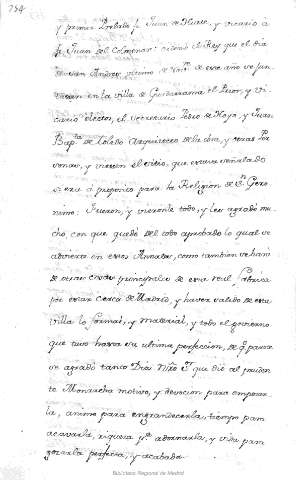 734
y primer Prelado fr. Juan de Huete, y vicario a
fr. Juan del Colmenar: ordenó el Rey que el dia
de San Andres ultimo de Nov.e de este año se jun
tasen en la villa de Guadarrama el Prior, y vi
cario electos, el Secretario Pedro de Hoyo, y Juan
Bap.ta de Toledo Arquitecto de la obra, y otras Per
sonas, y viesen el sitio que estaba señalado
si era a proposito para la Religion de S.n Gero
nimo: fueron, y vieronle todo, y les agradó mu
cho, con que quedó del todo aprobado lo qual se
advierte en estos Annales, como tambien se han
de otras cosas principales de esta real fabrica
por estar cerca de Madrid, y haver salido de esta
villa lo formal, y material, y todo el govierno
que tuvo hasta su ultima perfeccion, de q.e parece
se agradó tanto Dios Nro S.r que dió al pruden
te Monarcha motivo, y devocion para empezar
la, animo para engrandecerla, tiempo para
acavarla, riqueza p.a adornarla, y vida para
gozarla perfecta, y acabada.
Biblioteca Regional de Madrid